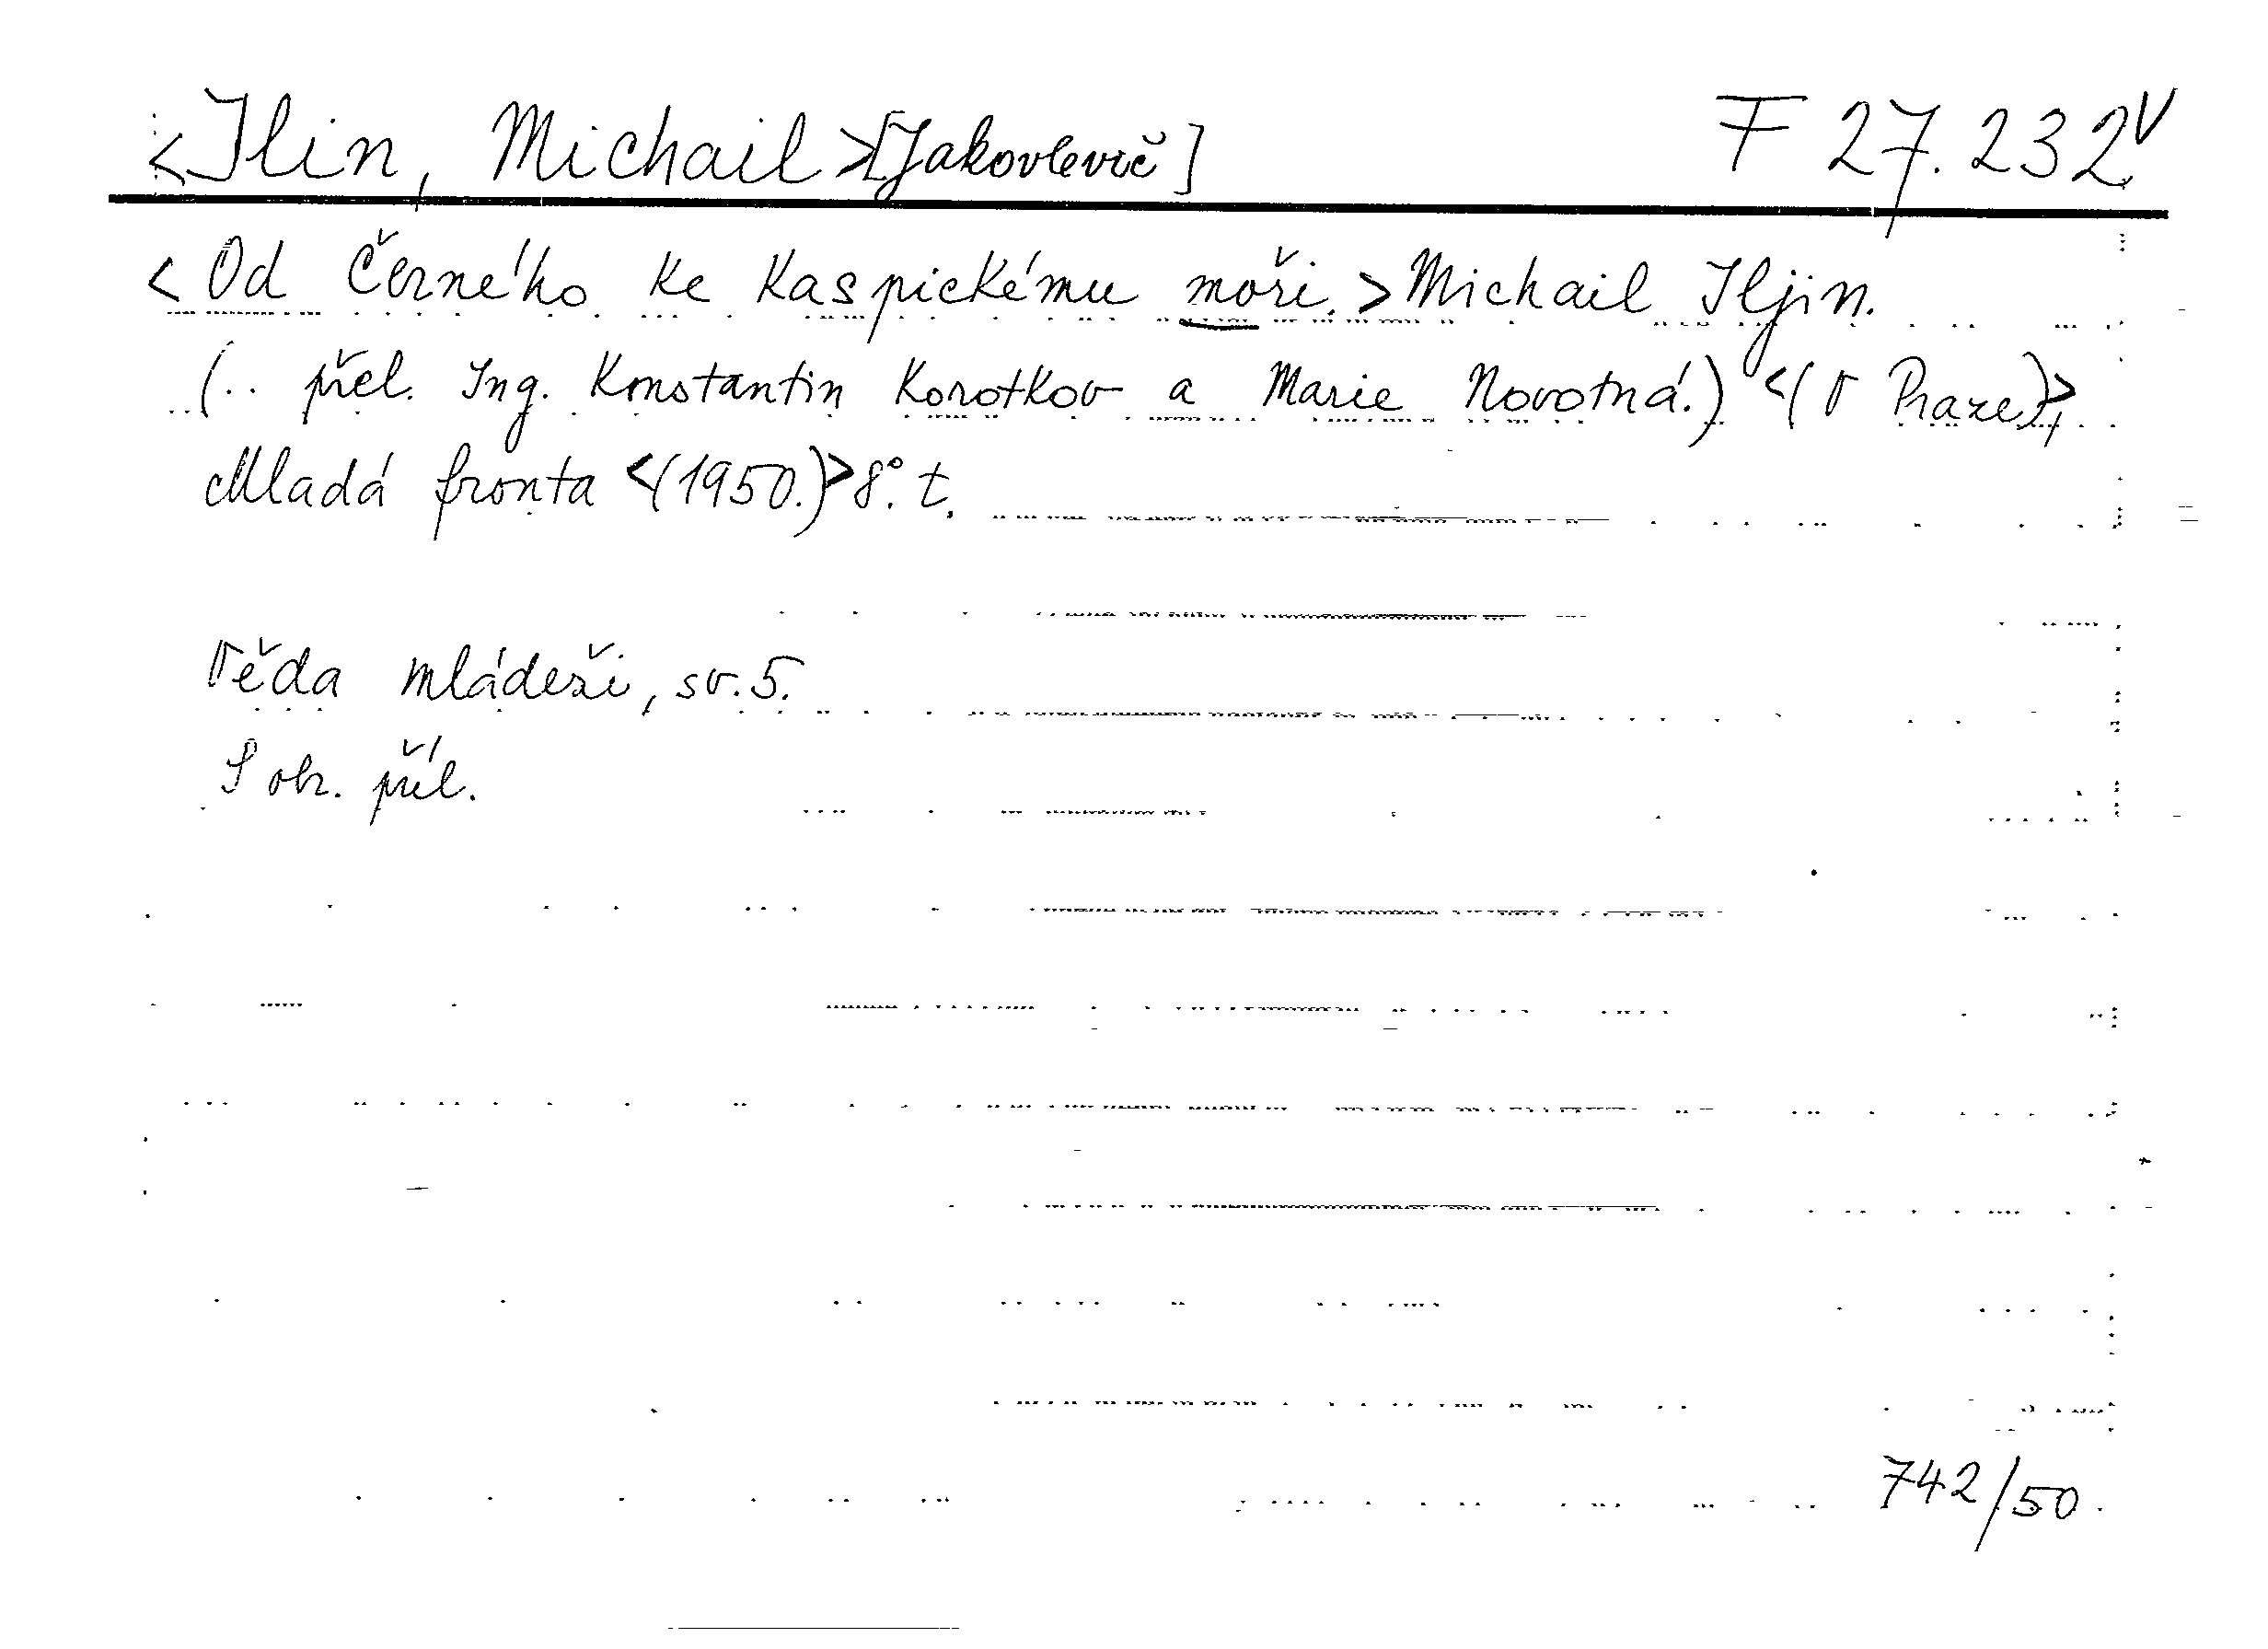 <Ilin, Michail>[Jakovlevič] F 27.232V
<Od Černého ke Kaspickému moři.> Michail Iljin.
(.. přel. Ing. Konstantin Korotkov a Marie Novotná.) <(V Praze)>,
Mladá fronta <(1950.)> 8°. t.
Věda mládeži, sv. 5.
S obr. příl.
742/50.